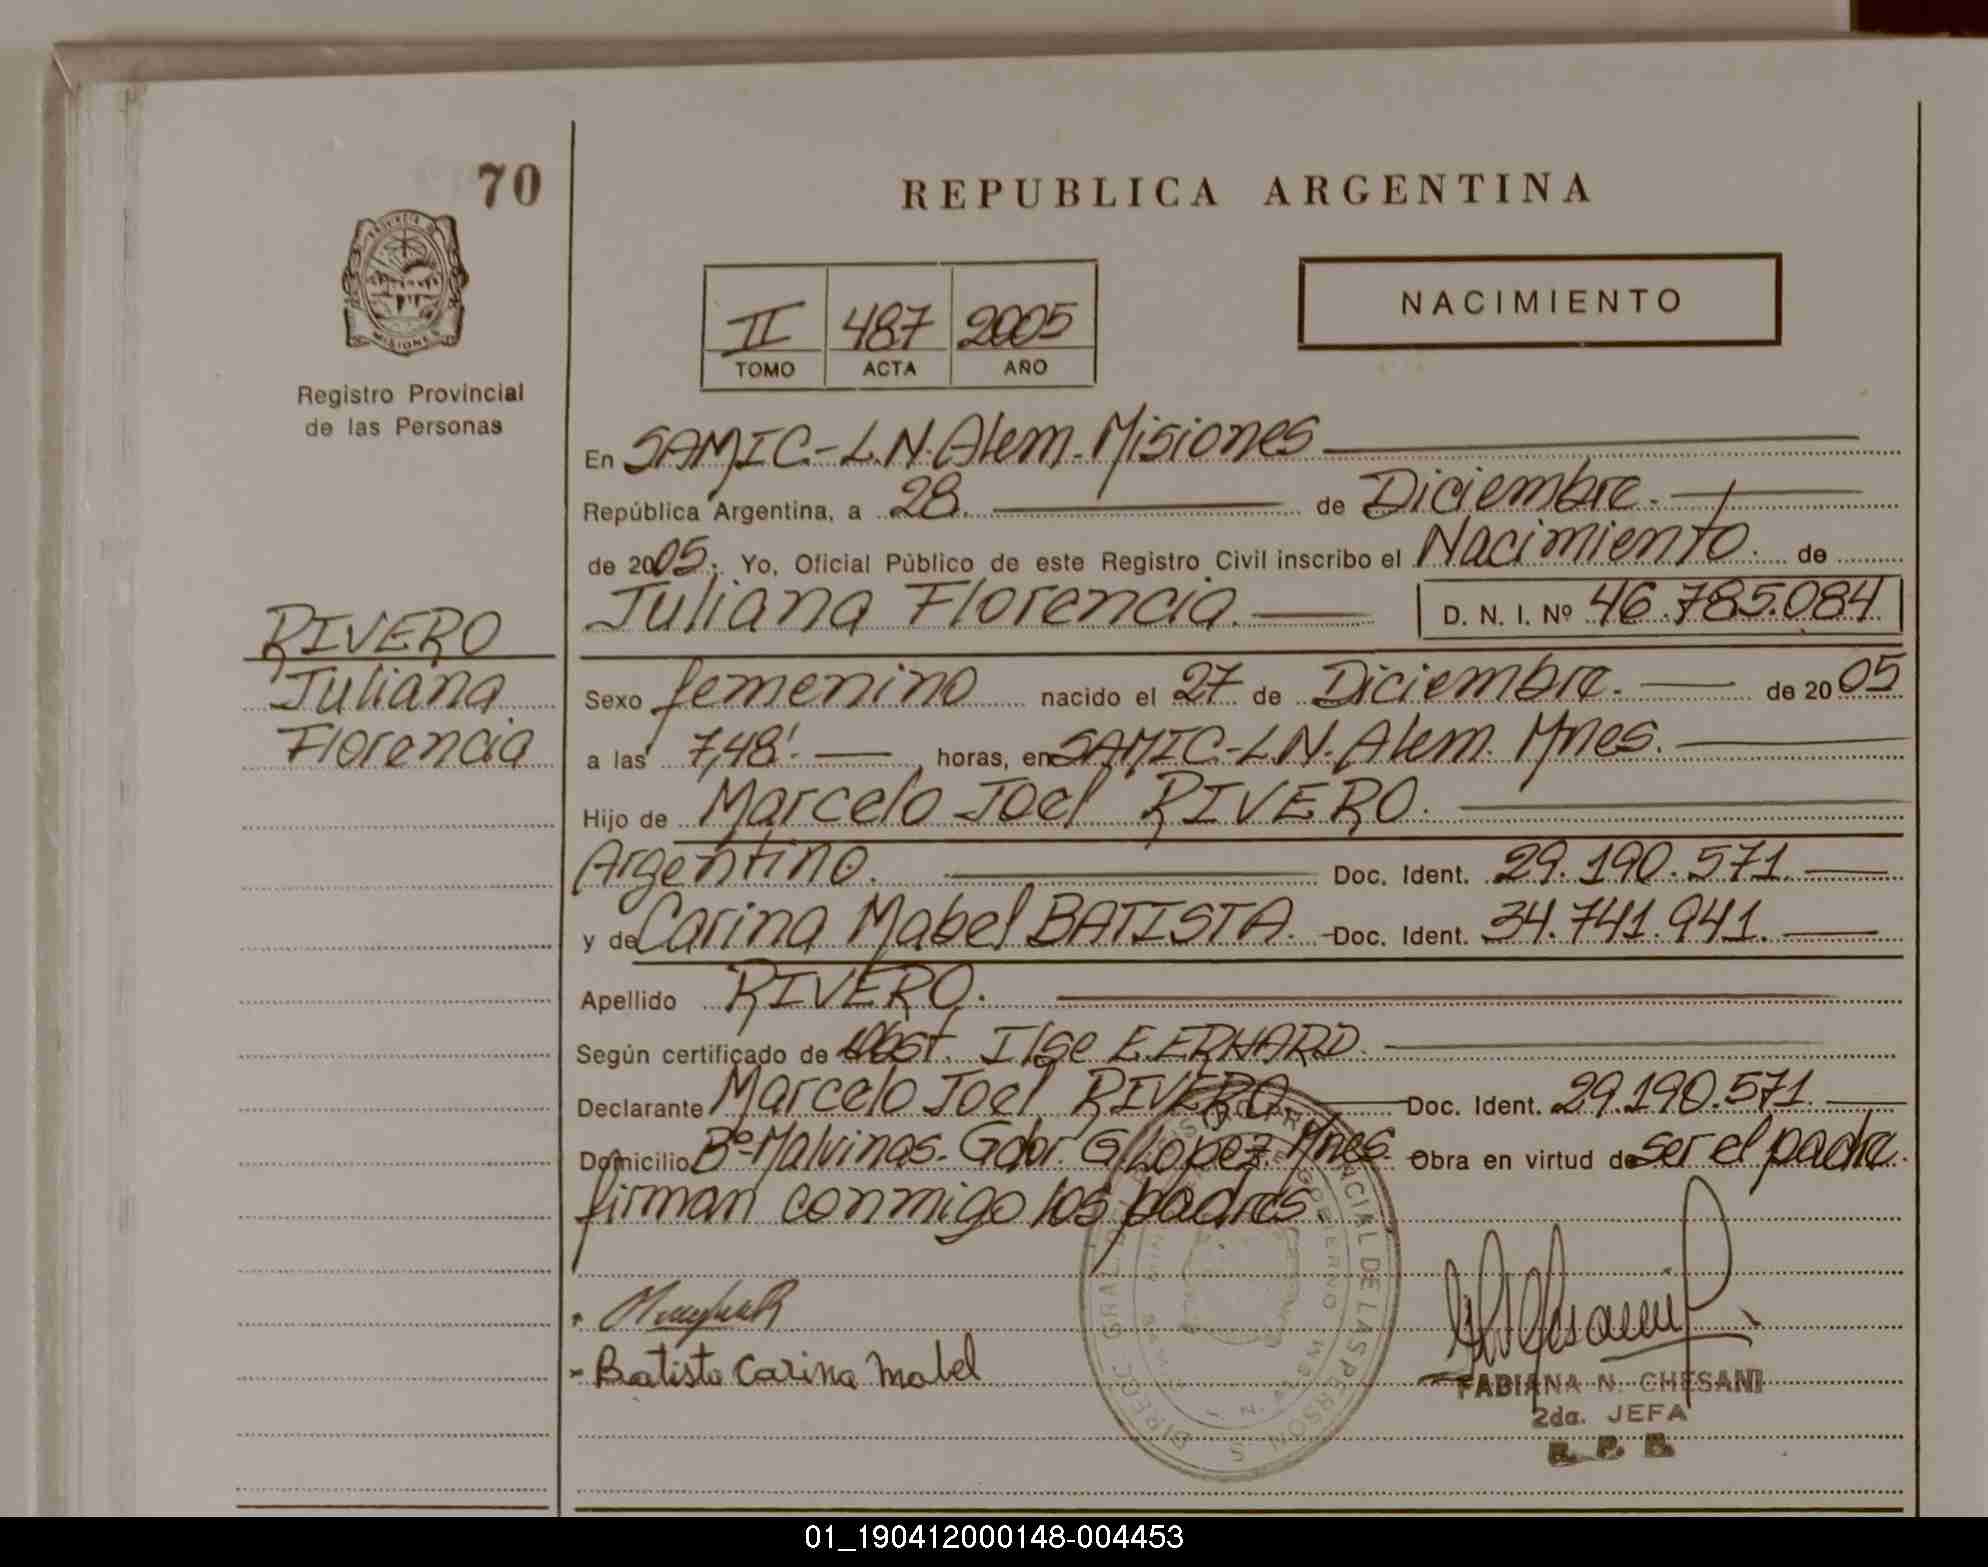 70
PROVINCIA DE
MISIONES
Registro Provincial
de las Personas
RIVERO
Juliana
Florencia
REPUBLICA ARGENTINA
II 487 2005
TOMO ACTA AÑO
NACIMIENTO
En SAMIC.-L.N.Alem.Misiones
República Argentina, a 28. de Diciembre.
de 2005. Yo, Oficial Público de este Registro Civil inscribo el Nacimiento. de
Juliana Florencia. D. N. I. Nº 46.785.084
Sexo femenino nacido el 27 de Diciembre. de 2005
a las 7,48'. horas, en SAMIC.-L.N.Alem. Mnes.
Hijo de Marcelo Joel RIVERO.
Argentino. Doc. Ident. 29.190.571.
y de Carina Mabel BATISTA. Doc. Ident. 34.741.941.
Apellido RIVERO.
Según certificado de Obst. Ilse E.ERHARD.
Declarante Marcelo Joel RIVERO Doc. Ident. 29.190.571.
Domicilio Bº-Malvinas.-Gdor. G.López.Mnes. Obra en virtud de ser el padre.
firman conmigo los padres.-
Batista Carina Mabel
FABIANA N. CHESANI
2da. JEFA
R. P. P.
01_190412000148-004453